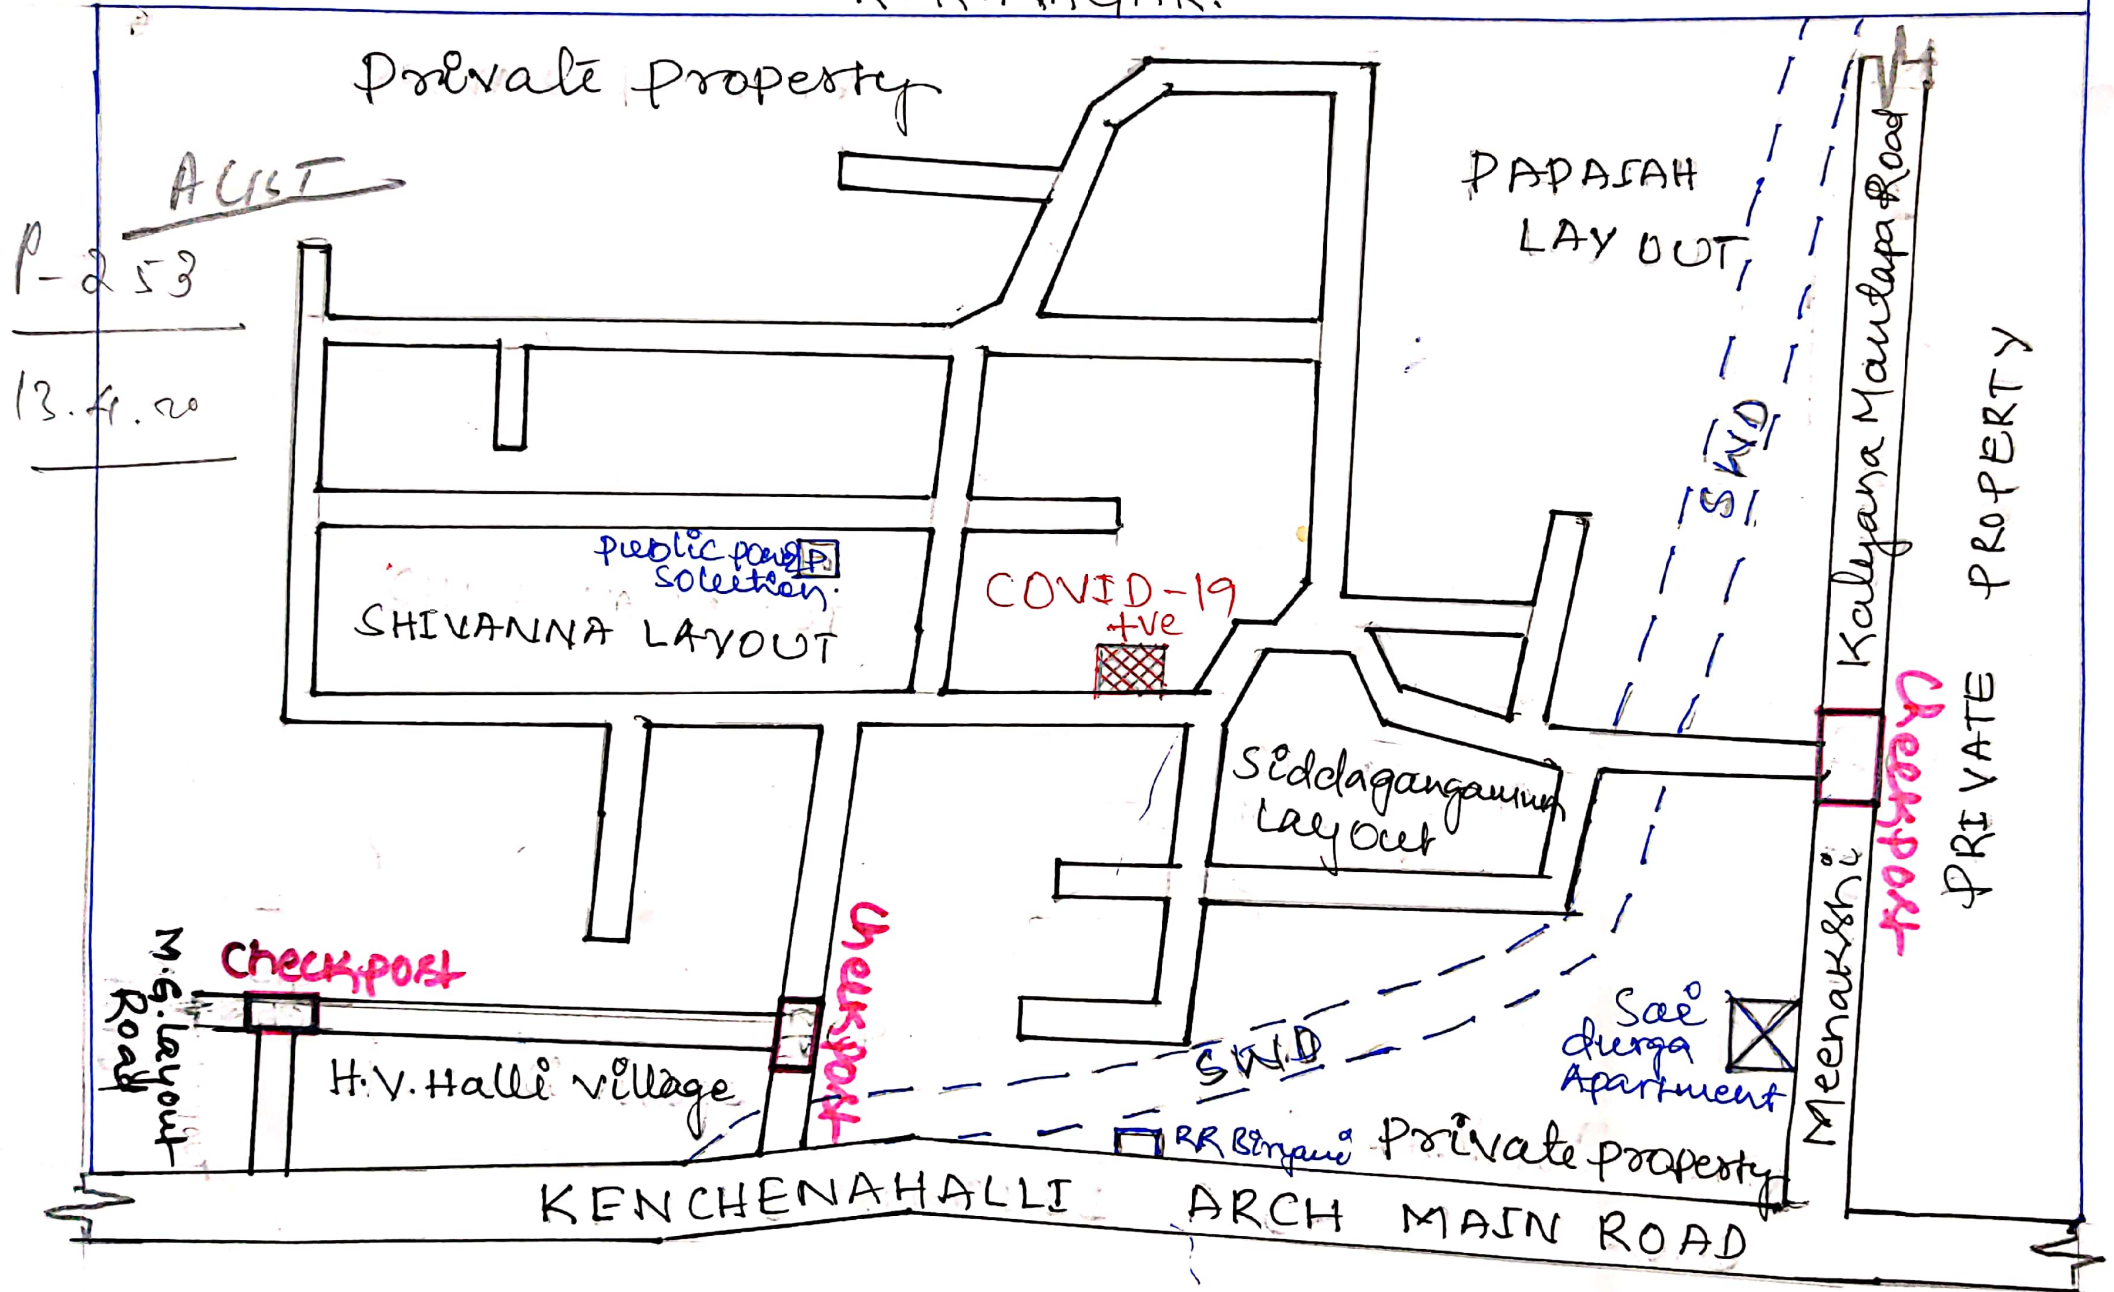 Private property
ALIST
P-253
13.4.20
PAPAIAH
LAY OUT
SWD
Kalyana Mantapa Road
PRIVATE PROPERTY
public
solution.
SHIVANNA LAYOUT
COVID-19
+ve
Siddaganganma
Layout
Checkpost
Checkpost
Checkpost
M.G. Layout
Road
H.V. Halli village
SWD
Sai
durga
Apartment
Meenakshi
RR Biryani
Private property
KENCHENAHALLI ARCH MAIN ROAD